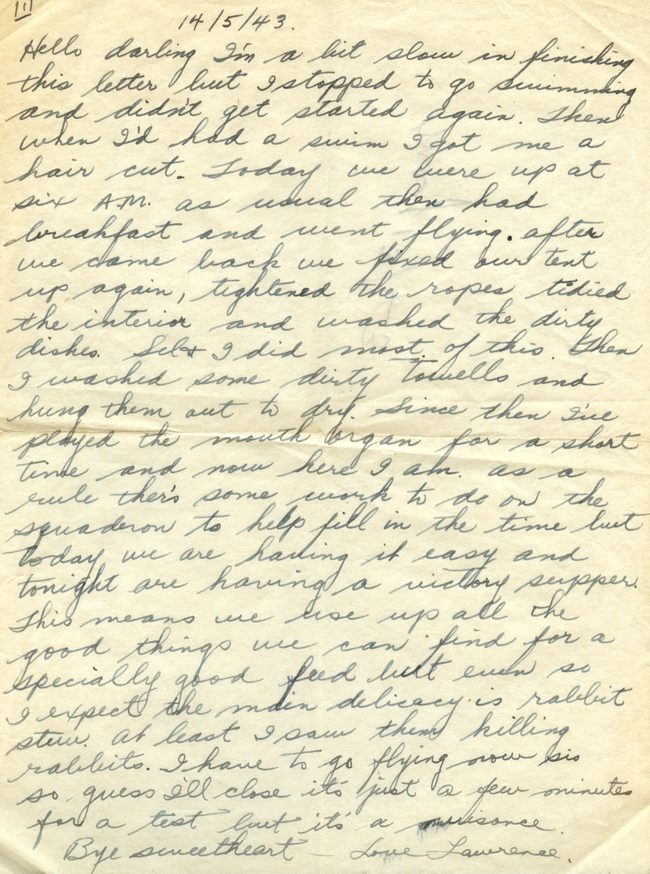 III
14/5/43.
Hello darling I'm a bit slow in finishing
this letter but I stopped to go swimming
and didn't get started again. Then
when I'd had a swim I got me a
hair cut. Today we were up at
six A.M. as usual then had
breakfast and went flying. after
we came back we fixed our tent
up again, tightened the ropes tidied
the interior and washed the dirty
dishes. I did most of this. then
I washed some dirty towells and
hung them out to dry. Since then I've
played the mouth organ for a short
time and now here I am. as a
rule ther's some work to do on the
squaderon to help fill in the time but
today we are having it easy and
tonight are having a victory supper.
This means we use up all the
good things we can find for a
specially good feed but even so
I expect the main delicacy is rabbit
stew. at least I saw them killing
rabbits. I have to go flying now sis
so guess I'll close it's just a few minutes
for a test but it's a nuisance.
Bye sweetheart – Love Lawrence.